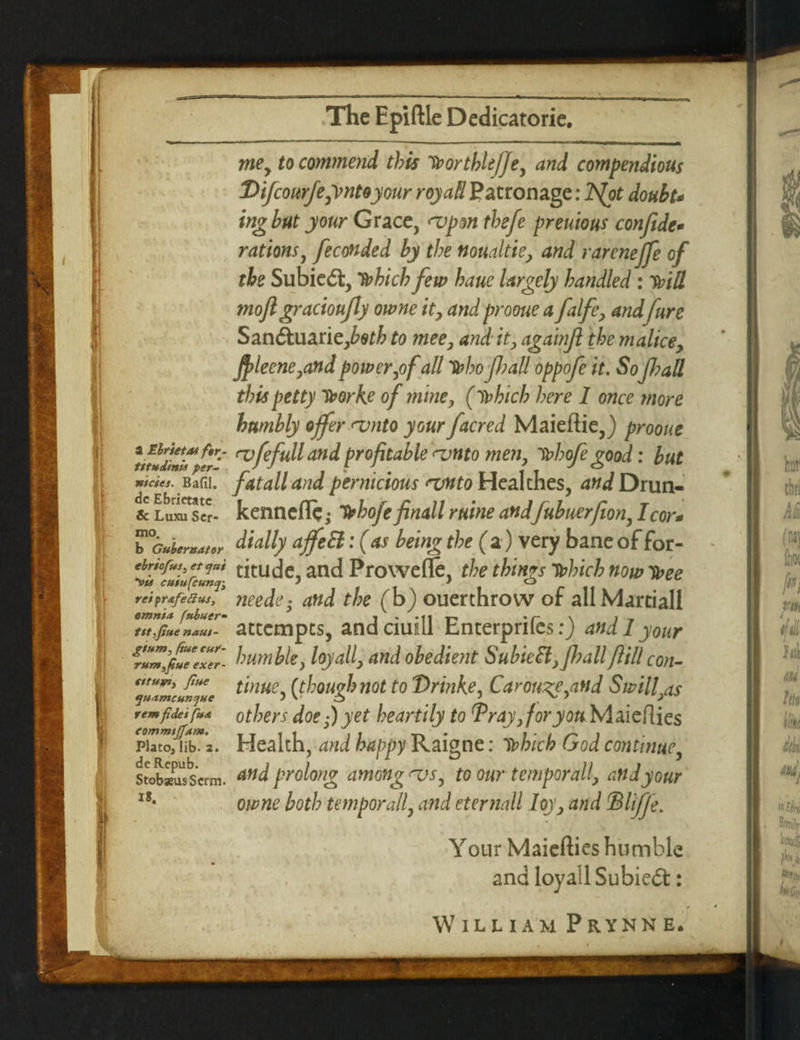 The Epiſtle Dedicatorie.
me, to commend this worthleſſe, and compendious
Diſcourſe, vnto your royall Patronage: Not doubt-
ing but your Grace, vpon theſe preuious conſide-
rations, ſeconded by the noualtie, and rareneſſe of
the Subiect, which few haue largely handled : will
moſt graciouſly owne it, and prooue a ſafe, and ſure
Sanctuarie, both to mee, and it, againſt the malice,
ſpleene, and power, of all who ſhall oppoſe it. So ſhall
this petty worke of mine, (which here I once more
humbly offer vnto your ſacred Maieſtie,) prooue
vſefull and profitable vnto men, whoſe good : but
fatall and pernicious vnto Healthes, and Drun-
kenneſſe; whoſe finall ruine and ſubuerſion, I cor-
dially affect : (as being the (a) very bane of for-
titude, and Proweſſe, the things which now wee
neede; and the (b) ouerthrow of all Martiall
attempts, and ciuill Enterpriſes:) and I your
humble, loyall, and obedient Subiect, ſhall ſtill con-
tinue, (though not to Drinke, Carouze, and Swill, as
others doe;) yet heartily to Pray, for you Maieſties
Health, and happy Raigne: which God continue,
and prolong among vs, to our temporall, and your
owne both temporall, and eternall Ioy, and Bliſſe.
Your Maieſties humble
and loyall Subiect :
WILLIAM PRYNNE.
a Ebrietas for-
titudinis per-
nicies. Baſil.
de Ebrietate
& Luxu Ser-
mo.
b Gubernator
ebrioſus, et qui
vis cuiuſcunq;
rei præfectus,
omnia ſubuer-
tit, ſiue naui-
gium, ſiue cur-
rum, ſiue exer-
citum, ſiue
quamcunque
rem fidei ſuæ
commiſſam.
Plato, lib. 2.
de Repub.
Stobæus Serm.
18.